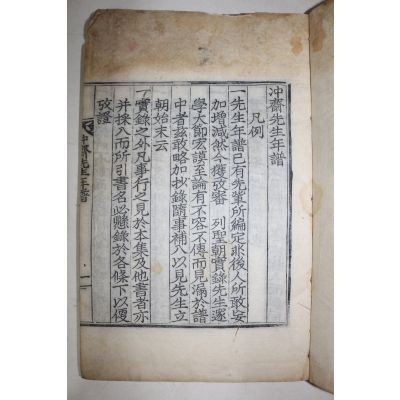 冲齋先生年譜
凡例
一先生年譜已有先輩所編定非後人所敢妄
加增減然今獲攷審 列聖朝實錄先生邃
學大節宏謨至論有不容不傳而見漏於譜
中者玆敢略加抄錄隨事補入以見先生立
朝始末云
一實錄之外凡事行之見於本集及他書者亦
幷採入而所引書名必懸錄於各條下以便
攷證
冲齋先生年譜
一